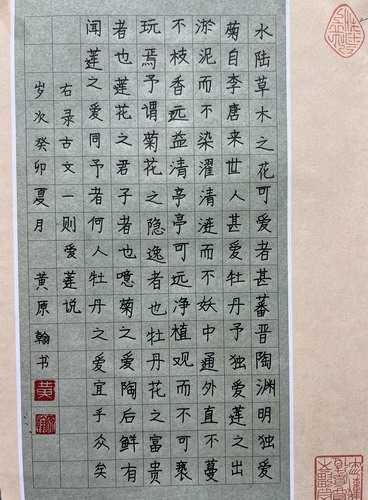 水陆草木之花可爱者甚蕃晋陶渊明独爱
菊自李唐来世人甚爱牡丹予独爱莲之出
淤泥而不染濯清涟而不妖中通外直不蔓
不枝香远益清亭亭可远净植观而不可亵
玩焉予谓菊花之隐逸者也牡丹花之富贵
者也莲花之君子者也噫菊之爱陶后鲜有
闻莲之爱同予者何人牡丹之爱宜乎众矣
右录古文一则爱莲说
岁次癸卯夏月 黄原翰书
黄